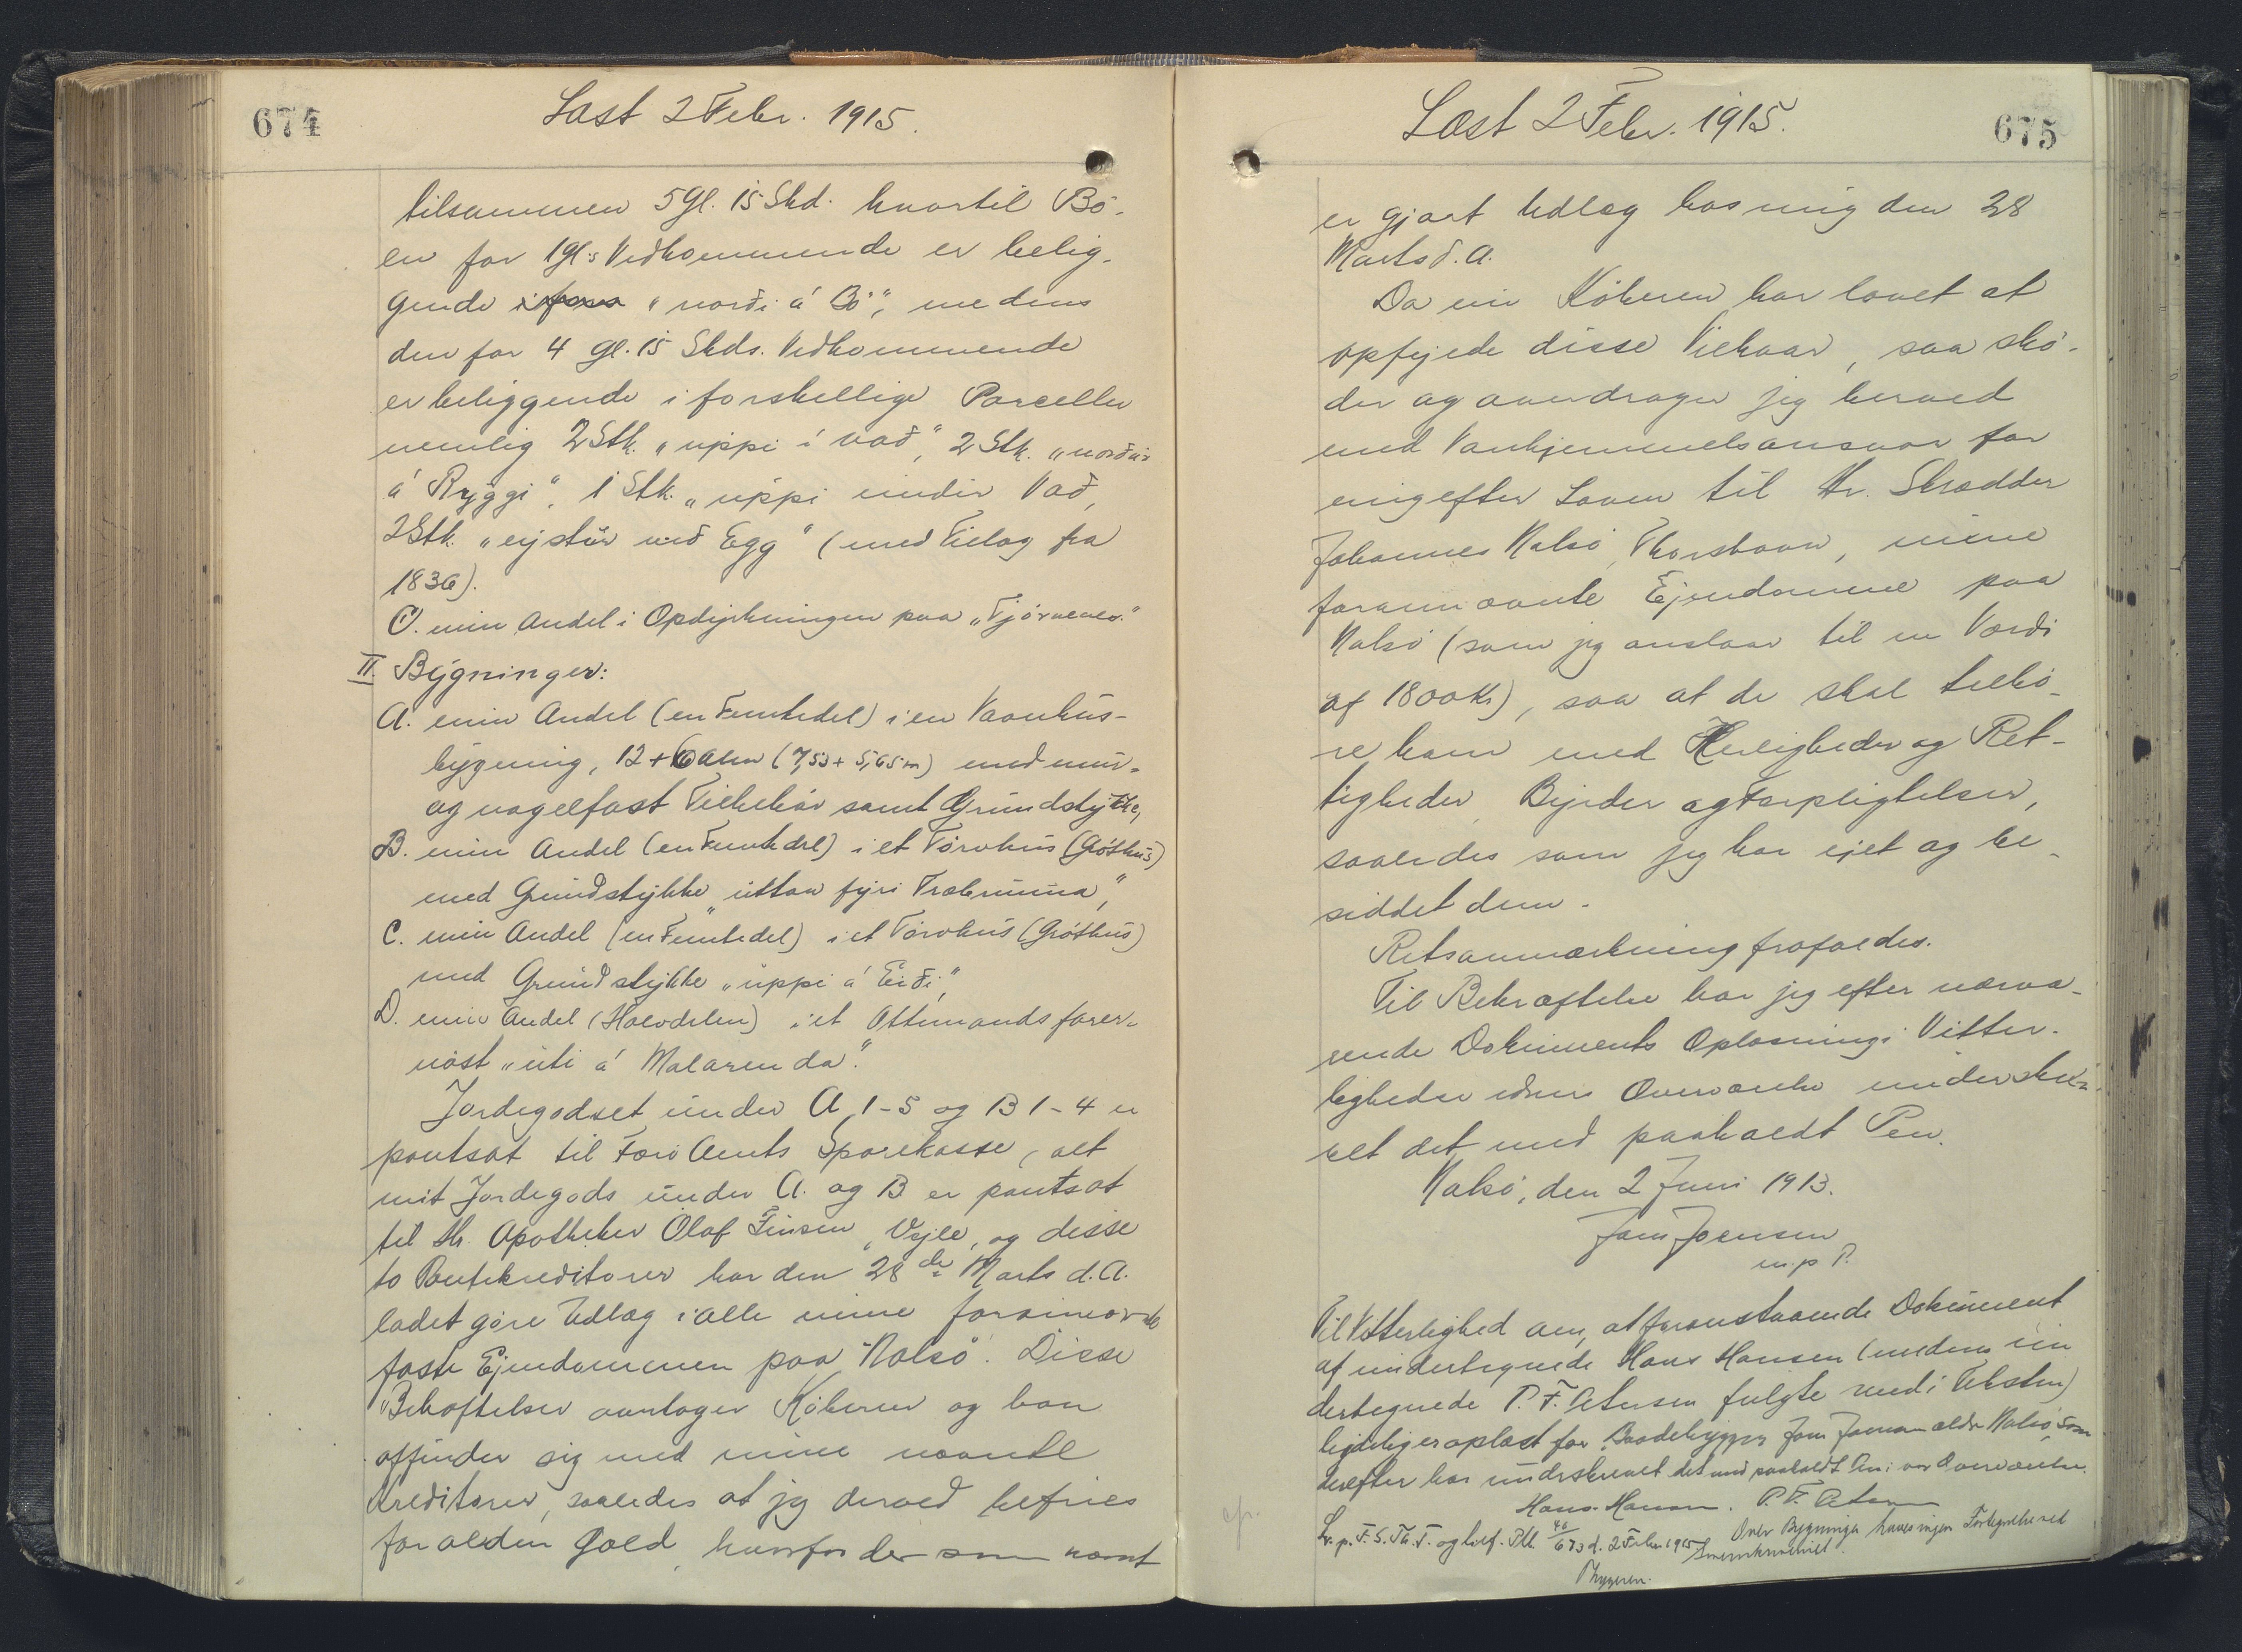 674
Læst 2 Febr. 1915.
tilsammen 5 Gl. 15 Skd. hvortil Bö-
en for 1 Gl:s Vedkommende er belig-
gende "norði á Bö", medens
den for 4 Gl. 15 Skds. Vedkommende
er beliggende i forskellige Parceller
nemlig 2 Stk. "uppi í Vað", 2 Stk. "norður
á Ryggi", 1 Stk. "uppi undir Vað,
2 Stk. "eystur við Egg" (med Tillæg fra
1836).
C. min Andel i Opdyrkningen paa "Tjörnenes."
II. Bygninger:
A. min Andel (en Femtedel) i en Vaanhus-
bygning, 12 + Alen (7,53 + 5,65 m) med mur-
og nagelfast Tilbehör samt Grundstykke,
B. min Andel (en Femtedel) i et Törvhus (Gróthus)
med Grundstykke "uttan fyri Træbrunna",
C. min Andel (en Femtedel) i et Törvhus (Gróthus)
med Grundstykke "uppi á Eiði",
D. min Andel (Halvdelen) i et Ottemandsfarer-
nöst "úti á Malarenda".
Jordegodset under A 1-5 og B 1-4 er
pantsat til Færö Amts Sparekasse, alt
mit Jordegods under A. og B er pantsat
til Hr. Apotheker Olaf Finsen, Vejle, og disse
to Pantekreditorer har den 28de Marts d. A.
ladet göre Udlæg i alle mine forannævnte
faste Ejendommen paa Nolsö. Disse
Behæftelser overtager Köberen og han
affinder sig med mine nævnte
Kreditorer, saaledes at jeg derved befries
for al den Gæld, hvorfor der som nævnt
Læst 2 Febr. 1915.
675
er gjort Udlæg hos mig den 28
Marts d. A.
Da nu Köberen har lovet at
opfyjlde disse Vilkaar, saa skö-
der og overdrager jeg herved
med Vanhjemmelsansvar for
mig efter Loven til Hr. Skrædder
Johannes Nolsö, Thorshavn, mine
forannævnte Ejendomme paa
Nolsö (som jeg anslaar til en Værdi
af 1800 Kr), saa at de skal tilhö-
re ham med Herligheder og Ret-
tigheder, Byrder og Forpligtelser,
saaledes som jeg har ejet og be-
siddet dem.
Retsanmærkning frafaldes.
Til Bekræftelse har jeg efter nærvæ-
rende Dokuments Oplæsning i Vitter-
ligheders Overværelse underskre-
vet det med paaholdt Pen.
Nolsö, den 2 Juni 1913.
Joen Joensen
m. p. P.
Til Vitterlighed om, at foranstaaende Dokument
af undertegnede Hans Hansen (medens un
dertegnede P. F. Petersen fulgte med i Teksten)
lydelig er oplæst for Baadebygger Joen Joensen ældr Nolsö, som
derefter har underskrevet det med paaholdt Pen i vor Overværelse.
Hans Hansen. P. F. Petersen
Lr. p. F. S. Th. T. og Prt. 46/673 d. 2 Febr. 1915 Over Bygninger haves ingen Fortegnelse ved